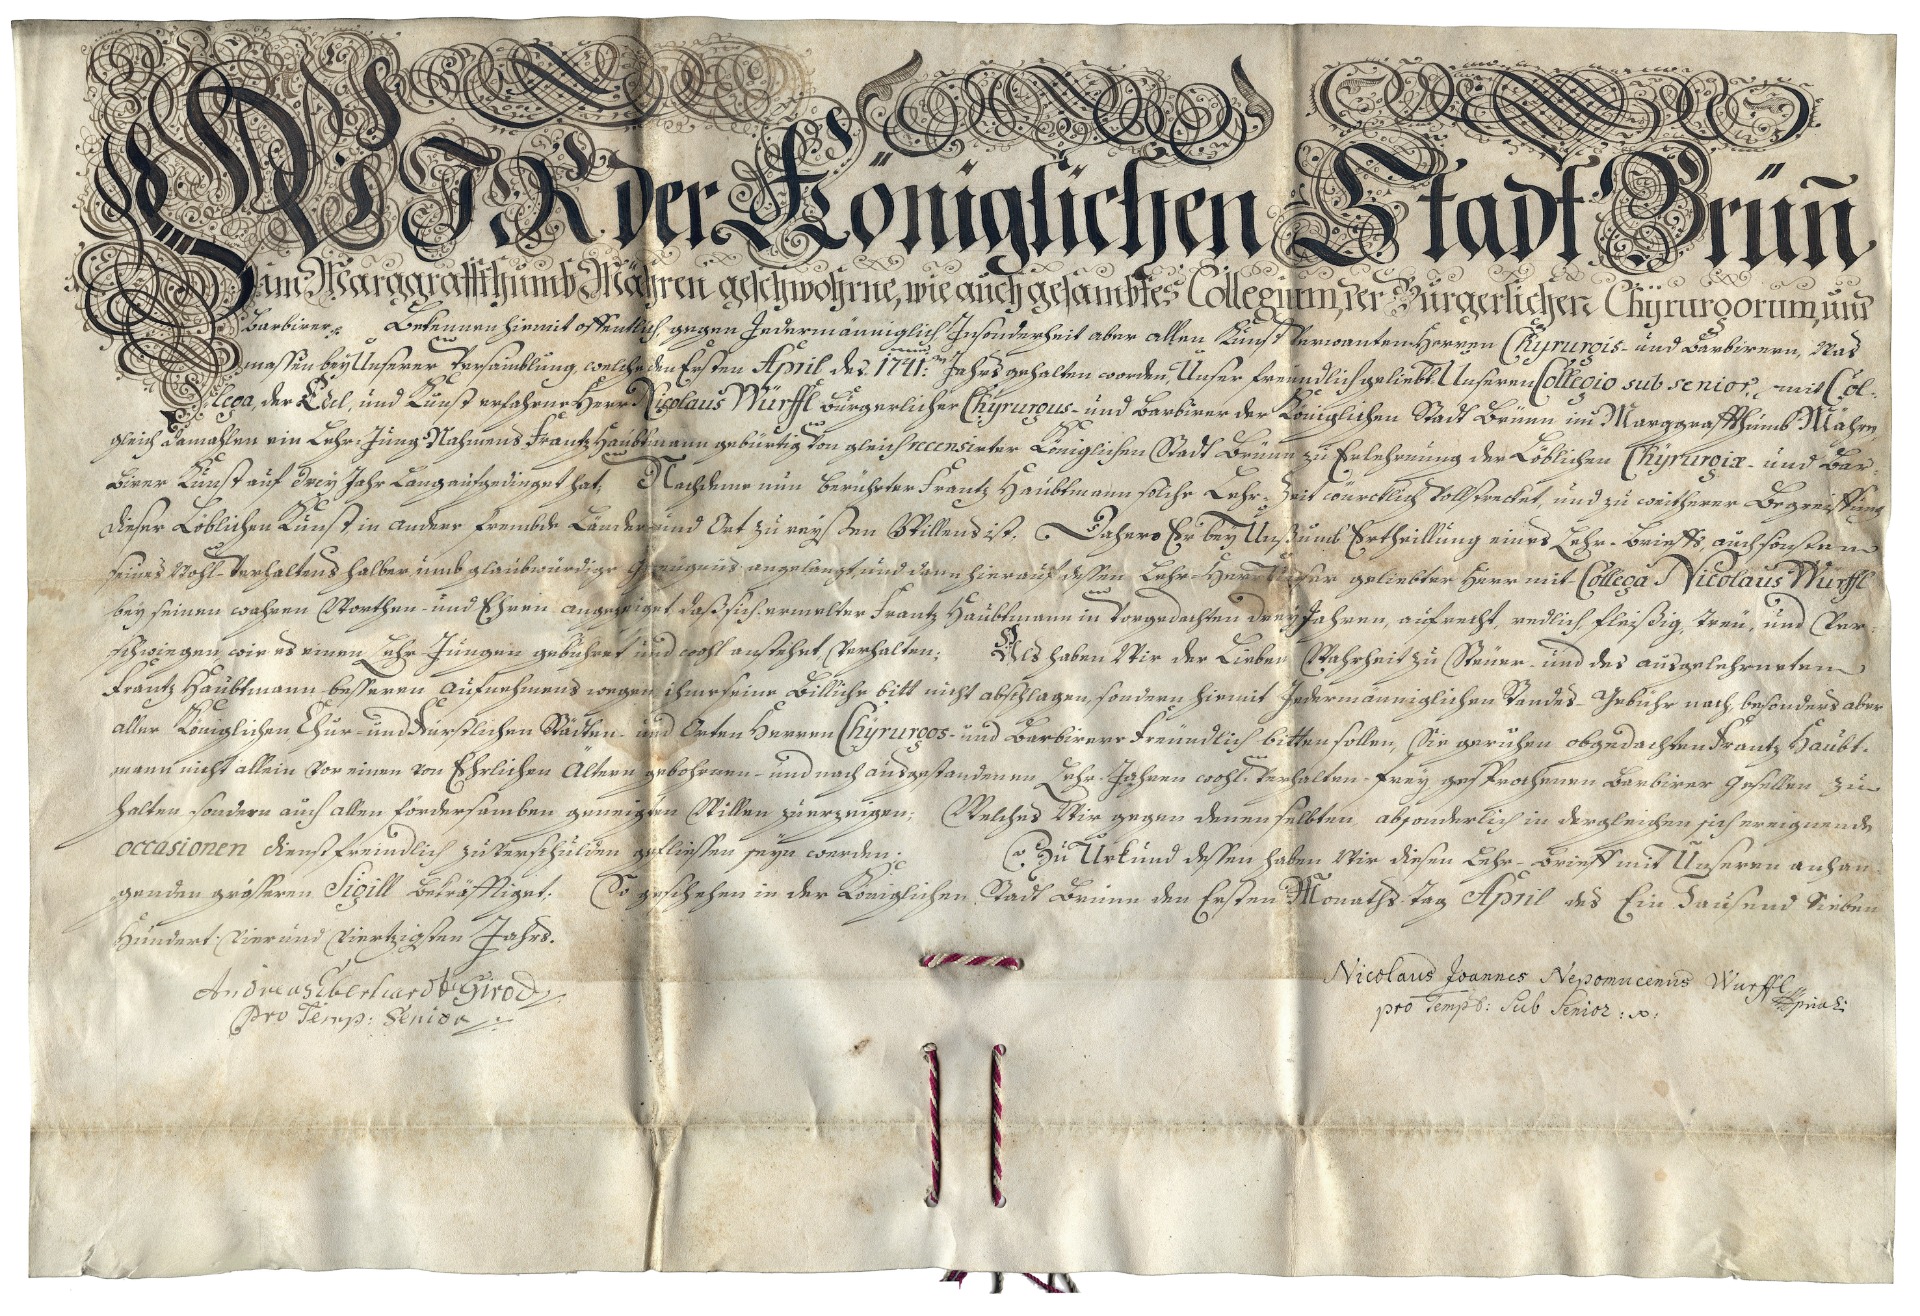 WIR der Königlichen Stadt Brün̄
im Marggraffthumb Mähren geschwohrne, wie auch gesambtes Collegium, der Burgerlichen Chÿrurgorum, und
Barbirer. Bekennen hiemit offentlich, gegen Jedermänniglich, Insonderheit aber allen Kunst Verwanten Herren Chÿrurgis- und Barbirern, Was
massen bey Unserer Versamblung, welche den Ersten April des 1741. Jahrs gehalten worden, Unser freundlich geliebt. Unseren Collegio sub senior, mit Col-
lega, der Edel, und Kunst erfahrne Herr Nicolaus Würffl Burgerlicher Chÿrurgus- und Barbirer der Königlichen Stadt Brünn im Marggraffthumb Mähren
gleich damahlen ein Lehr-Jung Nahmens Frantz Haubtmann gebürtig von gleich recensirter Königlichen Stadt Brünn zu Erlehrnung der Löblichen Chÿrurgiæ- und Bar-
birer Kunst auf drey Jahr Lang aufgedinget hat, Nachdeme nun berührter Frantz Haubtmann solche Lehr-Zeit würcklich Vollstrecket, und zu weitherer Begreiffung
dieser Löblichen Kunst in andere frembde Länder und Ort zu reyßen Willens ist. Dahero Er bey Unß umb Ertheillung eines Lehr-Brieffs, auch sonsten
seines Wohl-Verhaltens halber umb glaubwürdige Gezeugnus angelangt, und dann hierauf dessen Lehr-Herr Unser geliebter Herr mit-Collega Nicolaus Würffl
bey seinen wahren Worthen- und Ehren angezeiget, daß sich ermelter Frantz Haubtmann in Vorgedachten drey Jahren, aufrecht, redlich, fleißig, treu, und Ver-
schwiegen, wie es einen Lehr-Jungen gebühret und wohl anstehet, Verhalten; Als haben Wir der Lieben Wahrheit zu Steuer- und des ausgelehrneten
Frantz Haubtmann besseren Aufnehmens wegen, ihme seine Billiche bitt nicht abschlagen, sondern hiemit Jedermänniglichen Standes-Gebühr nach, besonders aber
aller Königlichen Chur- und Fürstlichen Städten- und Orten Herren Chÿrurgos- und Barbirere Freundlich bitten sollen, Sie geruhen obgedachten Frantz Haubt-
mann nicht allein Vor einen Von Ehrlichen Ältern gebohrnen- und nach ausgestandenen Lehr-Jahren wohl-Verhalten-frey gesprochenen Barbirer Gesellen zu
halten, sondern auch allen fördersamben geneigten Willen zu erzeigen; Welches Wir gegen denenselbten, absonderlich in dergleichen sich ereignende
occasionen dienstfreindlich zu Verschulden gefliessen seyn werden; Zu Urkund dessen haben Wir diesen Lehr-Brieff mit Unseren anhan-
genden grösseren Sigill Bekräfftiget. So geschehen in der Königlichen Stadt Brünn den Ersten Monaths-Tag April des Ein Tausend Sieben
Hundert: Vier und Viertzigsten Jahrs.
Andreas Eberhardt Girod
Pro Temp: Senior
Nicolaus Joannes Nepomucenus Würffl
pro Temp: Sub Senior